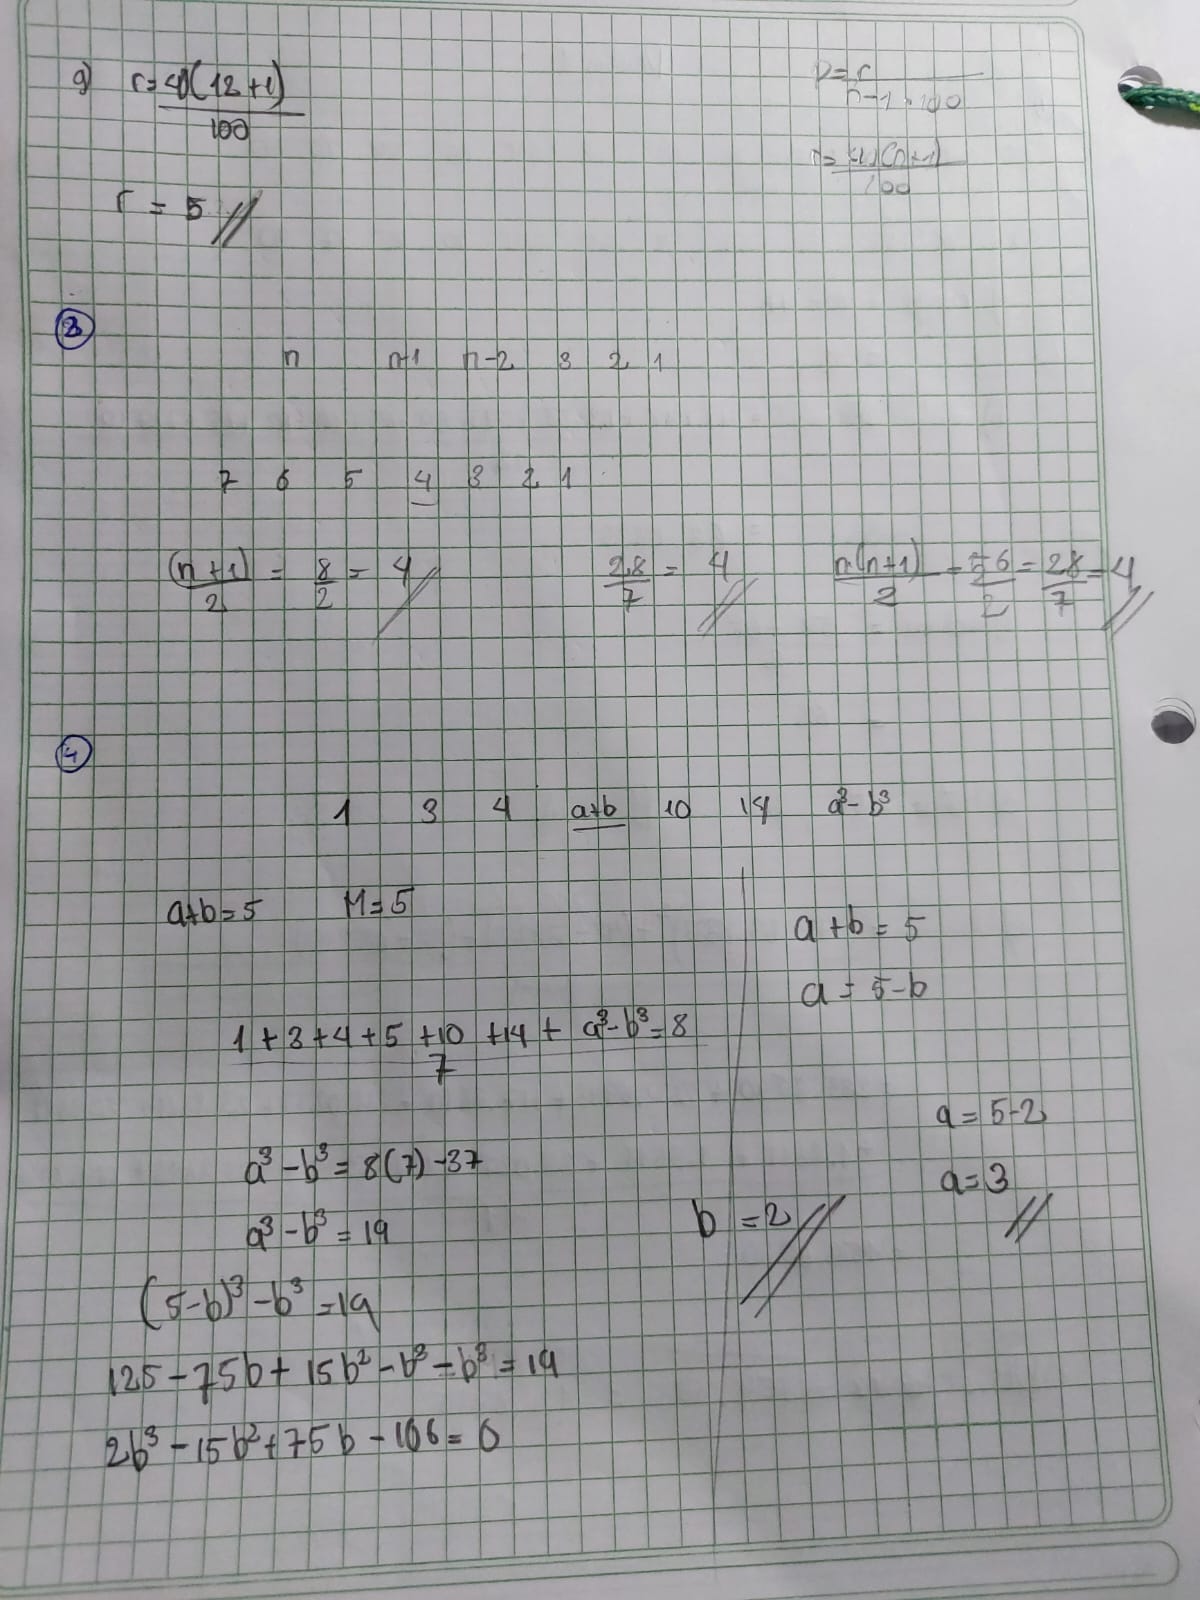 g) r = 40(12+1)
100
r = 5
P = r
n-1 . 100
100
3
n n-1 n-2 3 2 1
7 6 5 4 3 2 1
(n+1) = 8 = 4
2 2
28 = 4
7
n(n+1) = 56 = 28 = 4
2 2 7
4
1 3 4 a+b 10 14 a³-b³
a+b=5 M=5
1+3+4+5+10+14+a³-b³=8
7
a³-b³=8(7)-37
a³-b³=19
(5-b)³-b³=19
125-75b+15b²-b³-b³=19
2b³-15b²+75b-106=0
a+b=5
a=5-b
a=5-2
a=3
b=2